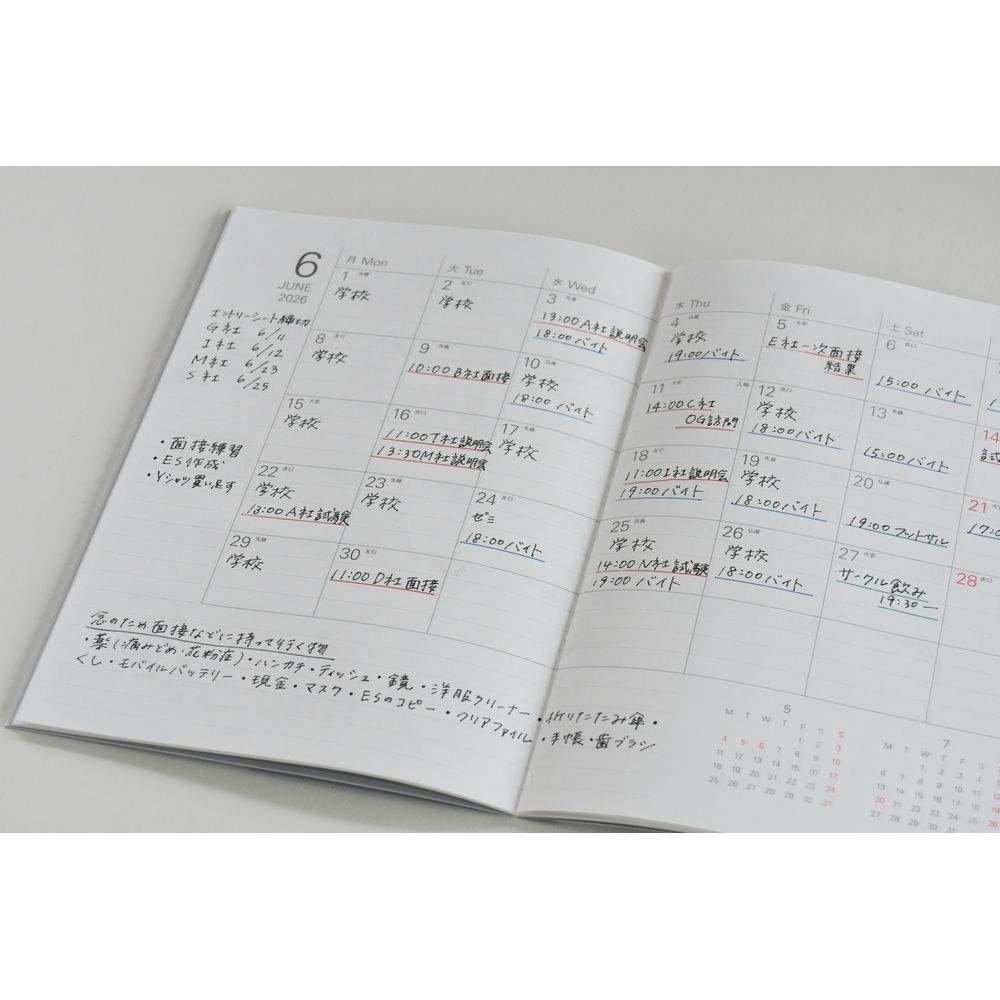 6
JUNE
2026
月 Mon
火 Tue
水 Wed
木 Thu
金 Fri
土 Sat
エントリーシート締切
G社 6/11
I社 6/12
M社 6/23
S社 6/25
・面接練習
・ES作成
・Yシャツ買い足す
1 先勝
学校
2 友引
学校
3 先負
13:00 A社説明会
18:00 バイト
4 仏滅
学校
19:00 バイト
5 大安
E社一次面接
結果
6 赤口
15:00 バイト
8 友引
学校
9 先負
10:00 B社面接
10 仏滅
学校
18:00 バイト
11 大安 入梅
14:00 C社
OG訪問
12 赤口
学校
18:00 バイト
13 先勝
15:00 バイト
14
15 大安
学校
16 赤口
11:00 T社説明会
13:30 M社説明会
17 先勝
学校
18 友引
11:00 I社説明会
19:00 バイト
19 先負
学校
18:00 バイト
20 仏滅
19:00 フットサル
21
22 赤口
学校
13:00 A社試験
23 先勝
学校
24 友引
ゼミ
18:00 バイト
25 先負
学校
14:00 N社試験
19:00 バイト
26 仏滅
学校
18:00 バイト
27 大安
サークル飲み
19:30ー
28 赤口
29 先勝
学校
30 友引
11:00 D社面接
念のため面接などに持って行く物
・薬(痛みどめ・花粉症)・ハンカチ・ティッシュ・鏡・洋服クリーナー・折りたたみ傘・
くし・モバイルバッテリー・現金・マスク・ESのコピー・クリアファイル・手帳・歯ブラシ
5
M T W T F S S
1 2 3
4 5 6 7 8 9 10
11 12 13 14 15 16 17
18 19 20 21 22 23 24
25 26 27 28 29 30 31
7
M T W T F S
1 2 3 4
6 7 8 9 10 11
13 14 15 16 17 18
20 21 22 23 24 25
27 28 29 30 31